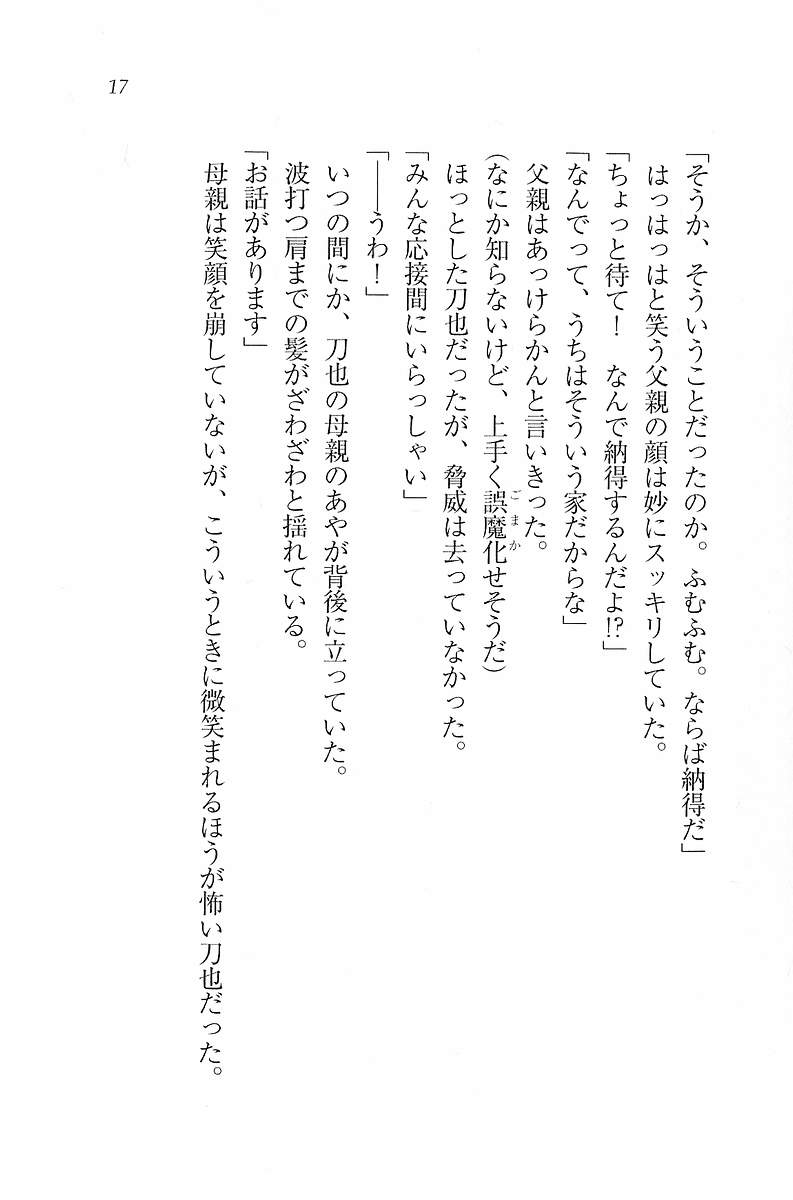 17
「そうか、そういうことだったのか。ふむふむ。ならば納得だ」
はっはっはと笑う父親の顔は妙にスッキリしていた。
「ちょっと待て！　なんで納得するんだよ!?」
「なんでって、うちはそういう家だからな」
父親はあっけらかんと言いきった。
(なにか知らないけど、上手く誤魔化せそうだ)
ごまか
ほっとした刀也だったが、脅威は去っていなかった。
「みんな応接間にいらっしゃい」
「――うわ！」
いつの間にか、刀也の母親のあやが背後に立っていた。
波打つ肩までの髪がざわざわと揺れている。
「お話があります」
母親は笑顔を崩していないが、こういうときに微笑まれるほうが怖い刀也だった。